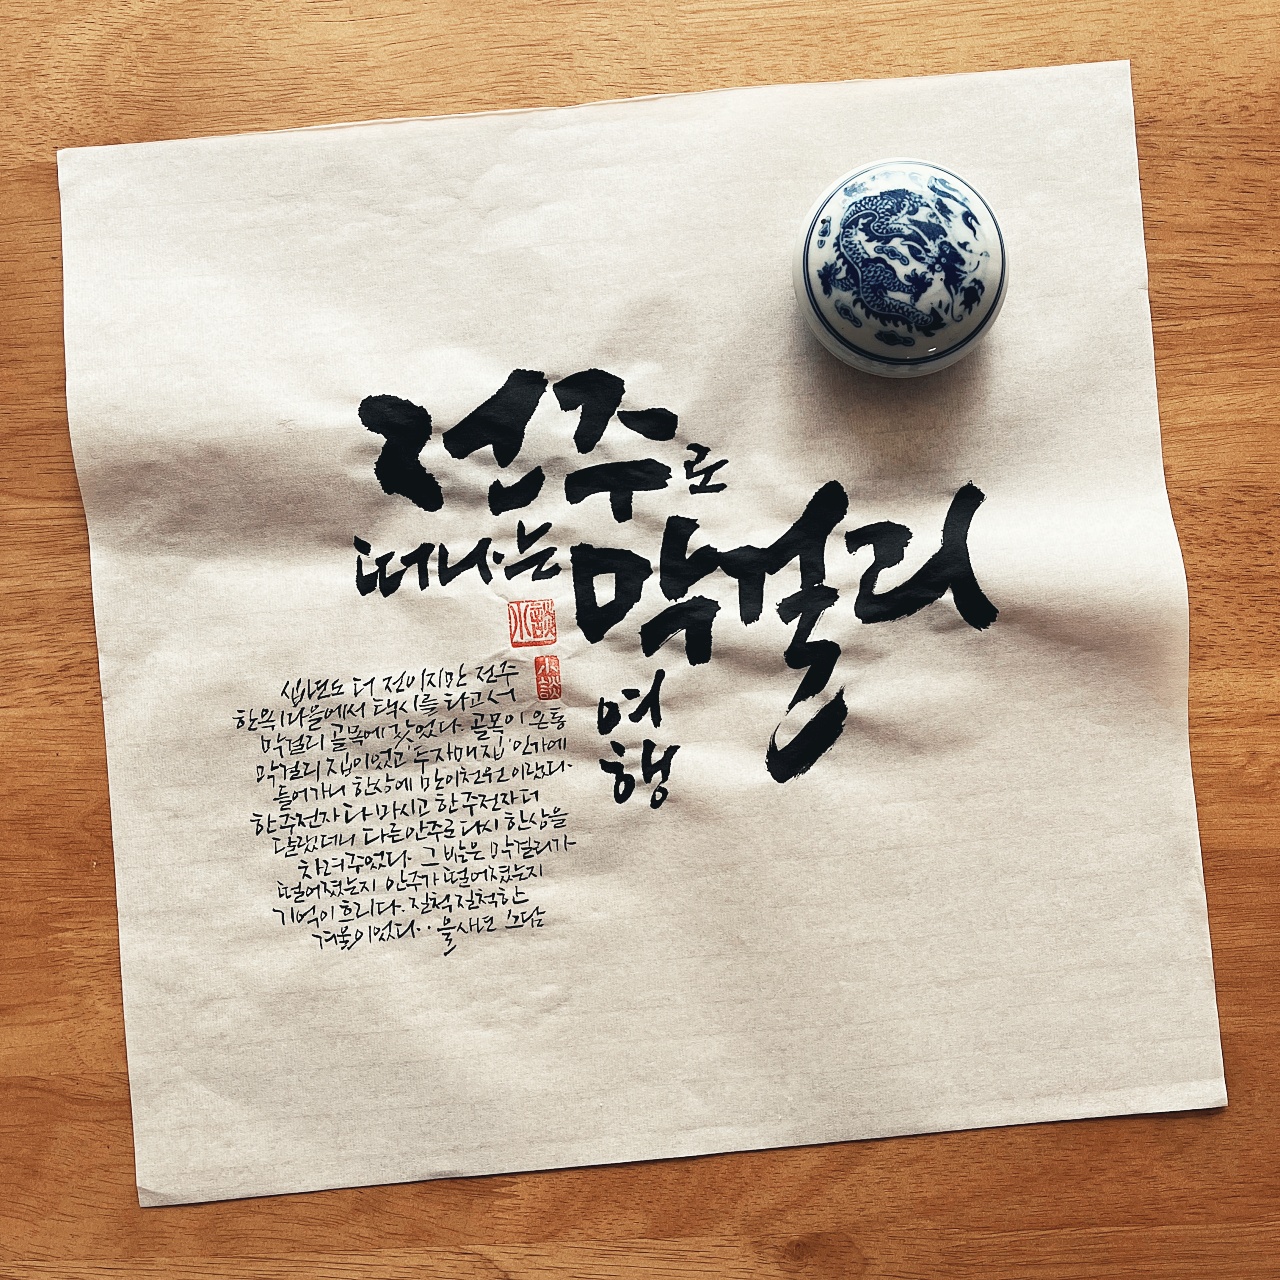 전주로
떠나는 막걸리
여
행
십년도 더 전이지만 전주
한옥마을에서 택시를 타고서
막걸리 골목에 갔었다. 골목이 온통
막걸리 집이었고 '두자매집'인가에
들어가니 한상에 만이천원 이랬다.
한주전자 다 마시고 한주전자 더
달랬더니 다른안주로 다시 한상을
차려주었다. 그 밤은 막걸리가
떨어졌는지 안주가 떨어졌는지
기억이 흐리다. 질척질척한
겨울이었다.. 물새년